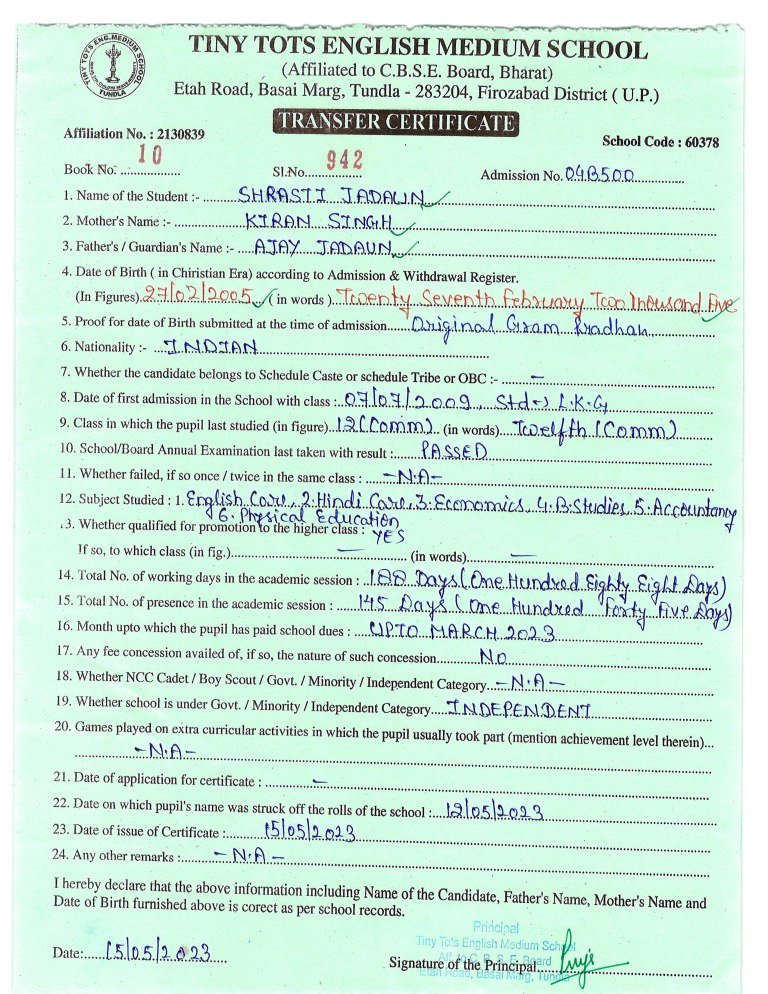 TINY TOTS ENG. MEDIUM SCHOOL
TUNDLA
TINY TOTS ENGLISH MEDIUM SCHOOL
(Affiliated to C.B.S.E. Board, Bharat)
Etah Road, Basai Marg, Tundla - 283204, Firozabad District ( U.P.)
TRANSFER CERTIFICATE
Affiliation No. : 2130839
School Code : 60378
Book No. 10 Sl.No. 942 Admission No. 04B500
1. Name of the Student :- SHRASTI JADAUN
2. Mother's Name :- KIRAN SINGH
3. Father's / Guardian's Name :- AJAY JADAUN
4. Date of Birth ( in Chiristian Era) according to Admission & Withdrawal Register.
(In Figures) 27/02/2005 ( in words ) Twenty Seventh February Two Thousand Five
5. Proof for date of Birth submitted at the time of admission Original Gram Pradhan
6. Nationality :- INDIAN
7. Whether the candidate belongs to Schedule Caste or schedule Tribe or OBC :- —
8. Date of first admission in the School with class : 07/07/2009, Std→ L.K.G
9. Class in which the pupil last studied (in figure) 12(Comm) (in words) Twelfth (Comm)
10. School/Board Annual Examination last taken with result : PASSED
11. Whether failed, if so once / twice in the same class : -N.A-
12. Subject Studied : 1. English Core, 2. Hindi Core, 3. Economics, 4. B. Studies, 5. Accountancy
6. Physical Education
.3. Whether qualified for promotion to the higher class : YES
If so, to which class (in fig.) — (in words) —
14. Total No. of working days in the academic session : 188 Days (One Hundred Eighty Eight Days)
15. Total No. of presence in the academic session : 145 Days (One Hundred Forty Five Days)
16. Month upto which the pupil has paid school dues : UPTO MARCH 2023
17. Any fee concession availed of, if so, the nature of such concession NO
18. Whether NCC Cadet / Boy Scout / Govt. / Minority / Independent Category -N.A-
19. Whether school is under Govt. / Minority / Independent Category INDEPENDENT
20. Games played on extra curricular activities in which the pupil usually took part (mention achievement level therein)...
-N.A-
21. Date of application for certificate : —
22. Date on which pupil's name was struck off the rolls of the school : 12/05/2023
23. Date of issue of Certificate : 15/05/2023
24. Any other remarks : -N.A-
I hereby declare that the above information including Name of the Candidate, Father's Name, Mother's Name and
Date of Birth furnished above is corect as per school records.
Principal
Tiny Tots English Medium School
Aff. to C. B. S. E. Board
Etah Road, Basai Marg, Tundla
Date: 15/05/2023
Signature of the Principal